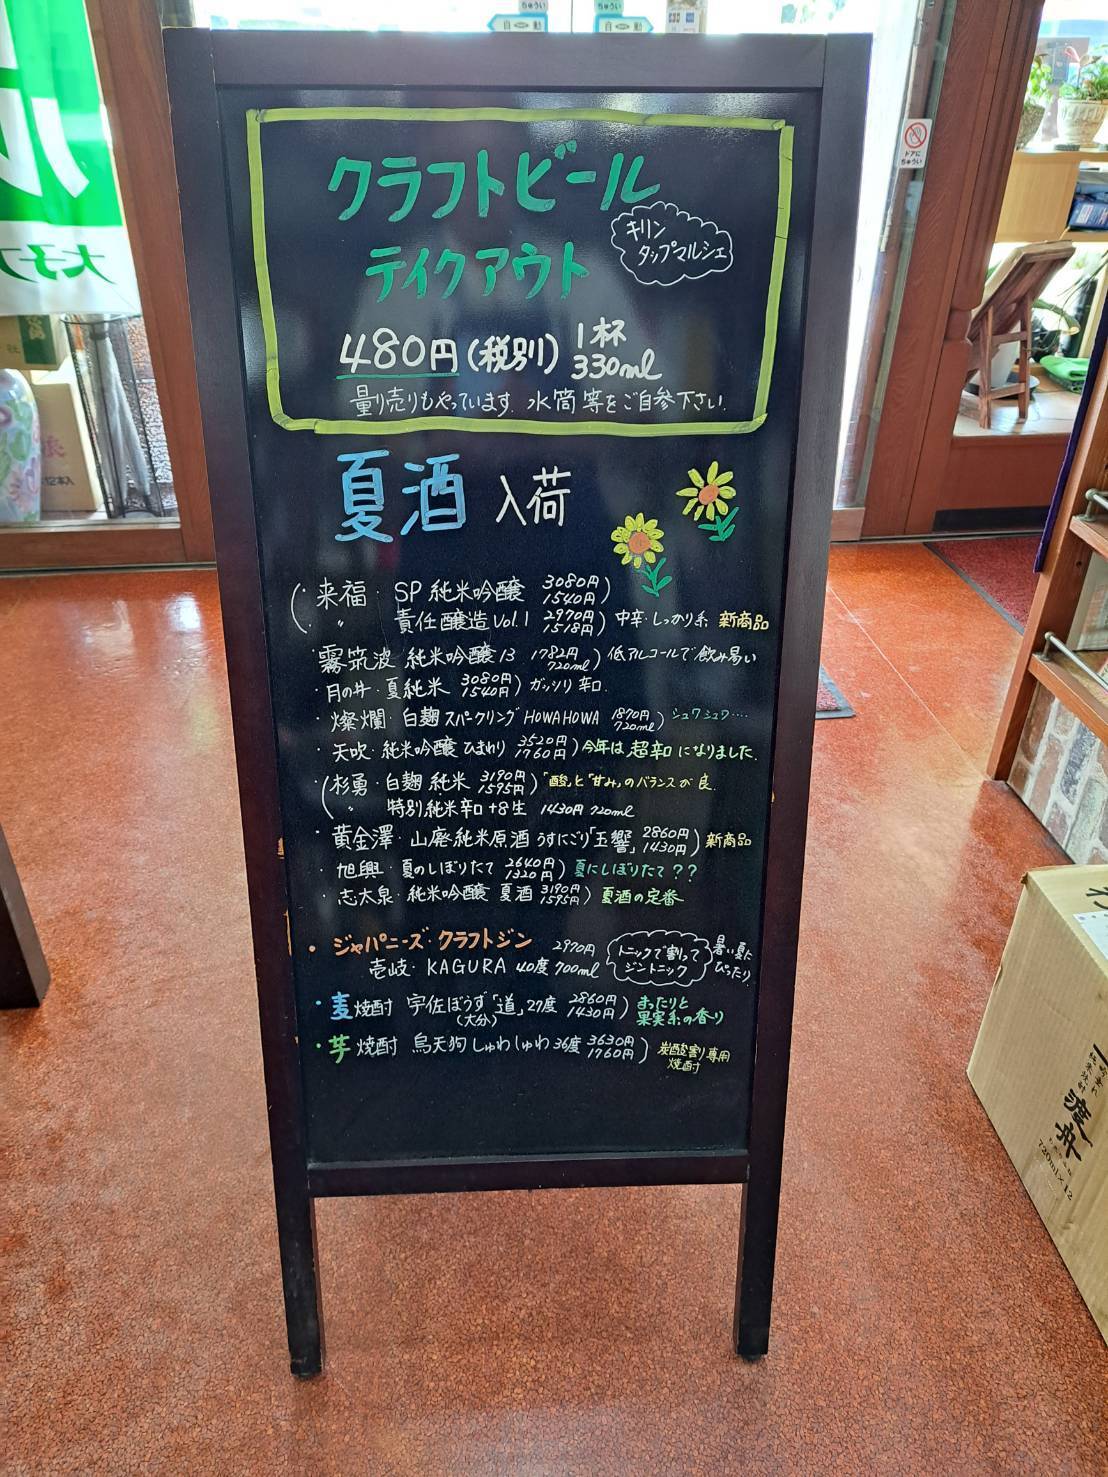 クラフトビール
テイクアウト
キリン
タップマルシェ
480円(税別) 1杯 330ml
量り売りもやっています. 水筒等をご自参下さい.
夏酒 入荷
(・来福・SP 純米吟醸 3080円 1540円)
・〃 責任醸造Vol.1 2970円 1518円) 中辛・しっかり系 新商品
・霧筑波 純米吟醸13 1782円 720ml) 低アルコールで飲み易い
・月の井・夏純米 3080円 1540円) ガッシリ辛口.
・燦爛・白麹スパークリング HOWAHOWA 1870円 720ml) シュワシュワ・・・・
・天吹・純米吟醸 ひまわり 3520円 1760円) 今年は超辛口になりました.
(・杉勇・白麹純米 3190円 1595円) 「酸」と「甘み」のバランスが良.
〃 特別純米辛口+8生 1430円 720ml
・黄金澤・山廃純米原酒 うすにごり「玉響」 2860円 1430円) 新商品
・旭興・夏のしぼりたて 2640円 1320円) 夏にしぼりたて??
・志太泉・純米吟醸 夏酒 3190円 1595円) 夏酒の定番
・ジャパニーズ・クラフトジン 2970円
壱岐・KAGURA 40度 700ml
トニックで割って
ジントニック
暑い夏に
ぴったり
・麦焼酎 宇佐ぼうず「道」27度 2860円 1430円) まったりと
(大分) 果実系の香り
・芋焼酎 烏天狗しゅわしゅわ36度 3630円 1760円) 炭酸割り専用
焼酎
ドアに
ちゅうい
ちゅうい
自動
自動
12本入
渡舟
720ml×12